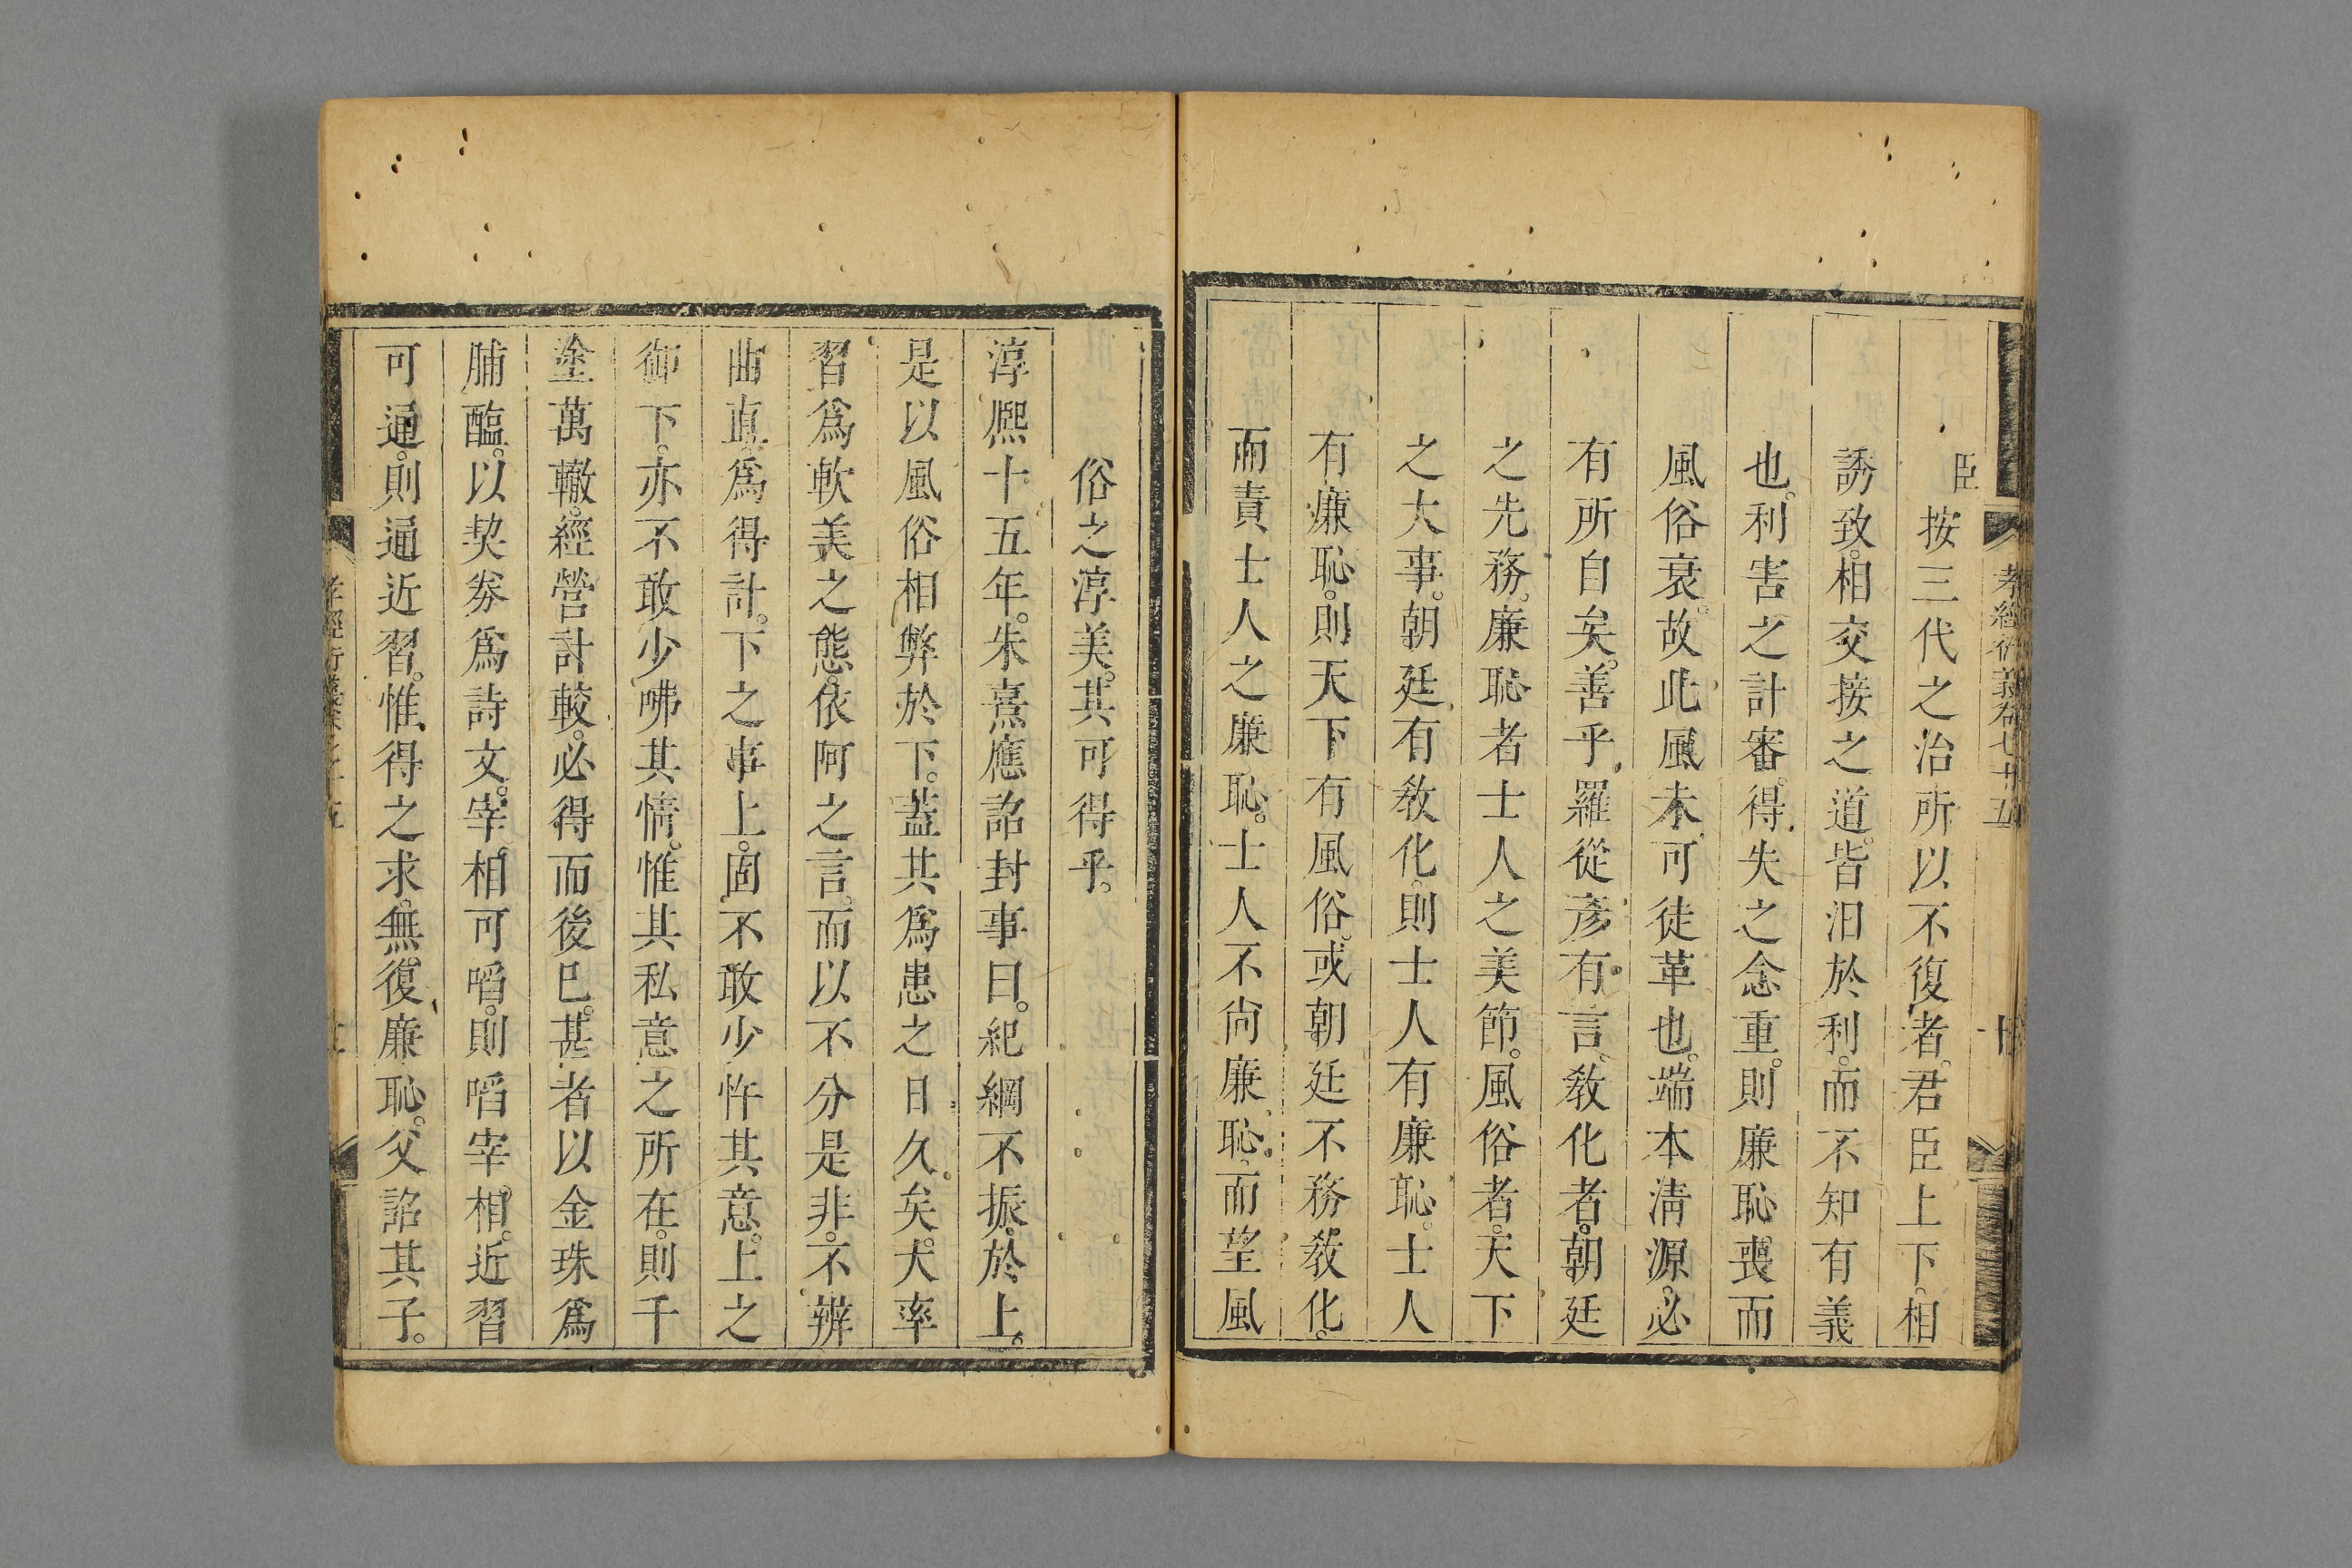 孝經衍義卷七十五
臣按三代之治所以不復者。君臣上下。相
誘致。相交接之道。皆汨於利。而不知有義
也。利害之計審。得失之念重。則廉恥喪而
風俗衰。故此風未可徒革也。端本淸源。必
有所自矣。善乎羅從彥有言。教化者。朝廷
之先務。廉恥者士人之美節。風俗者。天下
之大事。朝廷有教化。則士人有廉恥。士人
有廉恥。則天下有風俗。或朝廷不務教化。
而責士人之廉恥。士人不尚廉恥。而望風
俗之淳美。其可得乎。
淳熙十五年。朱熹應詔封事曰。紀綱不振。於上。
是以風俗相弊於下。葢其爲患之日久矣。大率
習爲軟美之態。依阿之言。而以不分是非。不辨
曲直。爲得計。下之事上。固不敢少忤其意。上之
御下。亦不敢少咈其情。惟其私意之所在。則千
塗萬轍。經營計較。必得而後已。甚者以金珠爲
脯醢。以契劵爲詩文。宰相可啗。則啗宰相。近習
可通。則通近習。惟得之求。無復廉恥。父詔其子。